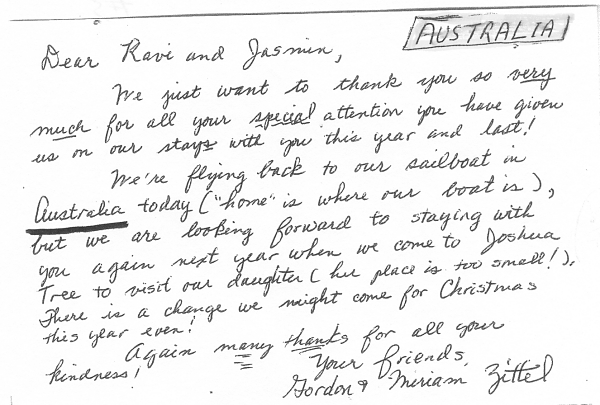 AUSTRALIA
Dear Ravi and Jasmin,
We just want to thank you so very
much for all your special attention you have given
us on our stays with you this year and last!
We're flying back to our sailboat in
Australia today ("home" is where our boat is),
but we are looking forward to staying with
you again next year when we come to Joshua
Tree to visit our daughter (her place is too small!).
There is a change we might come for Christmas
this year even!
Again many thanks for all your
kindness!
Your friends,
Gordon & Miriam Zittel